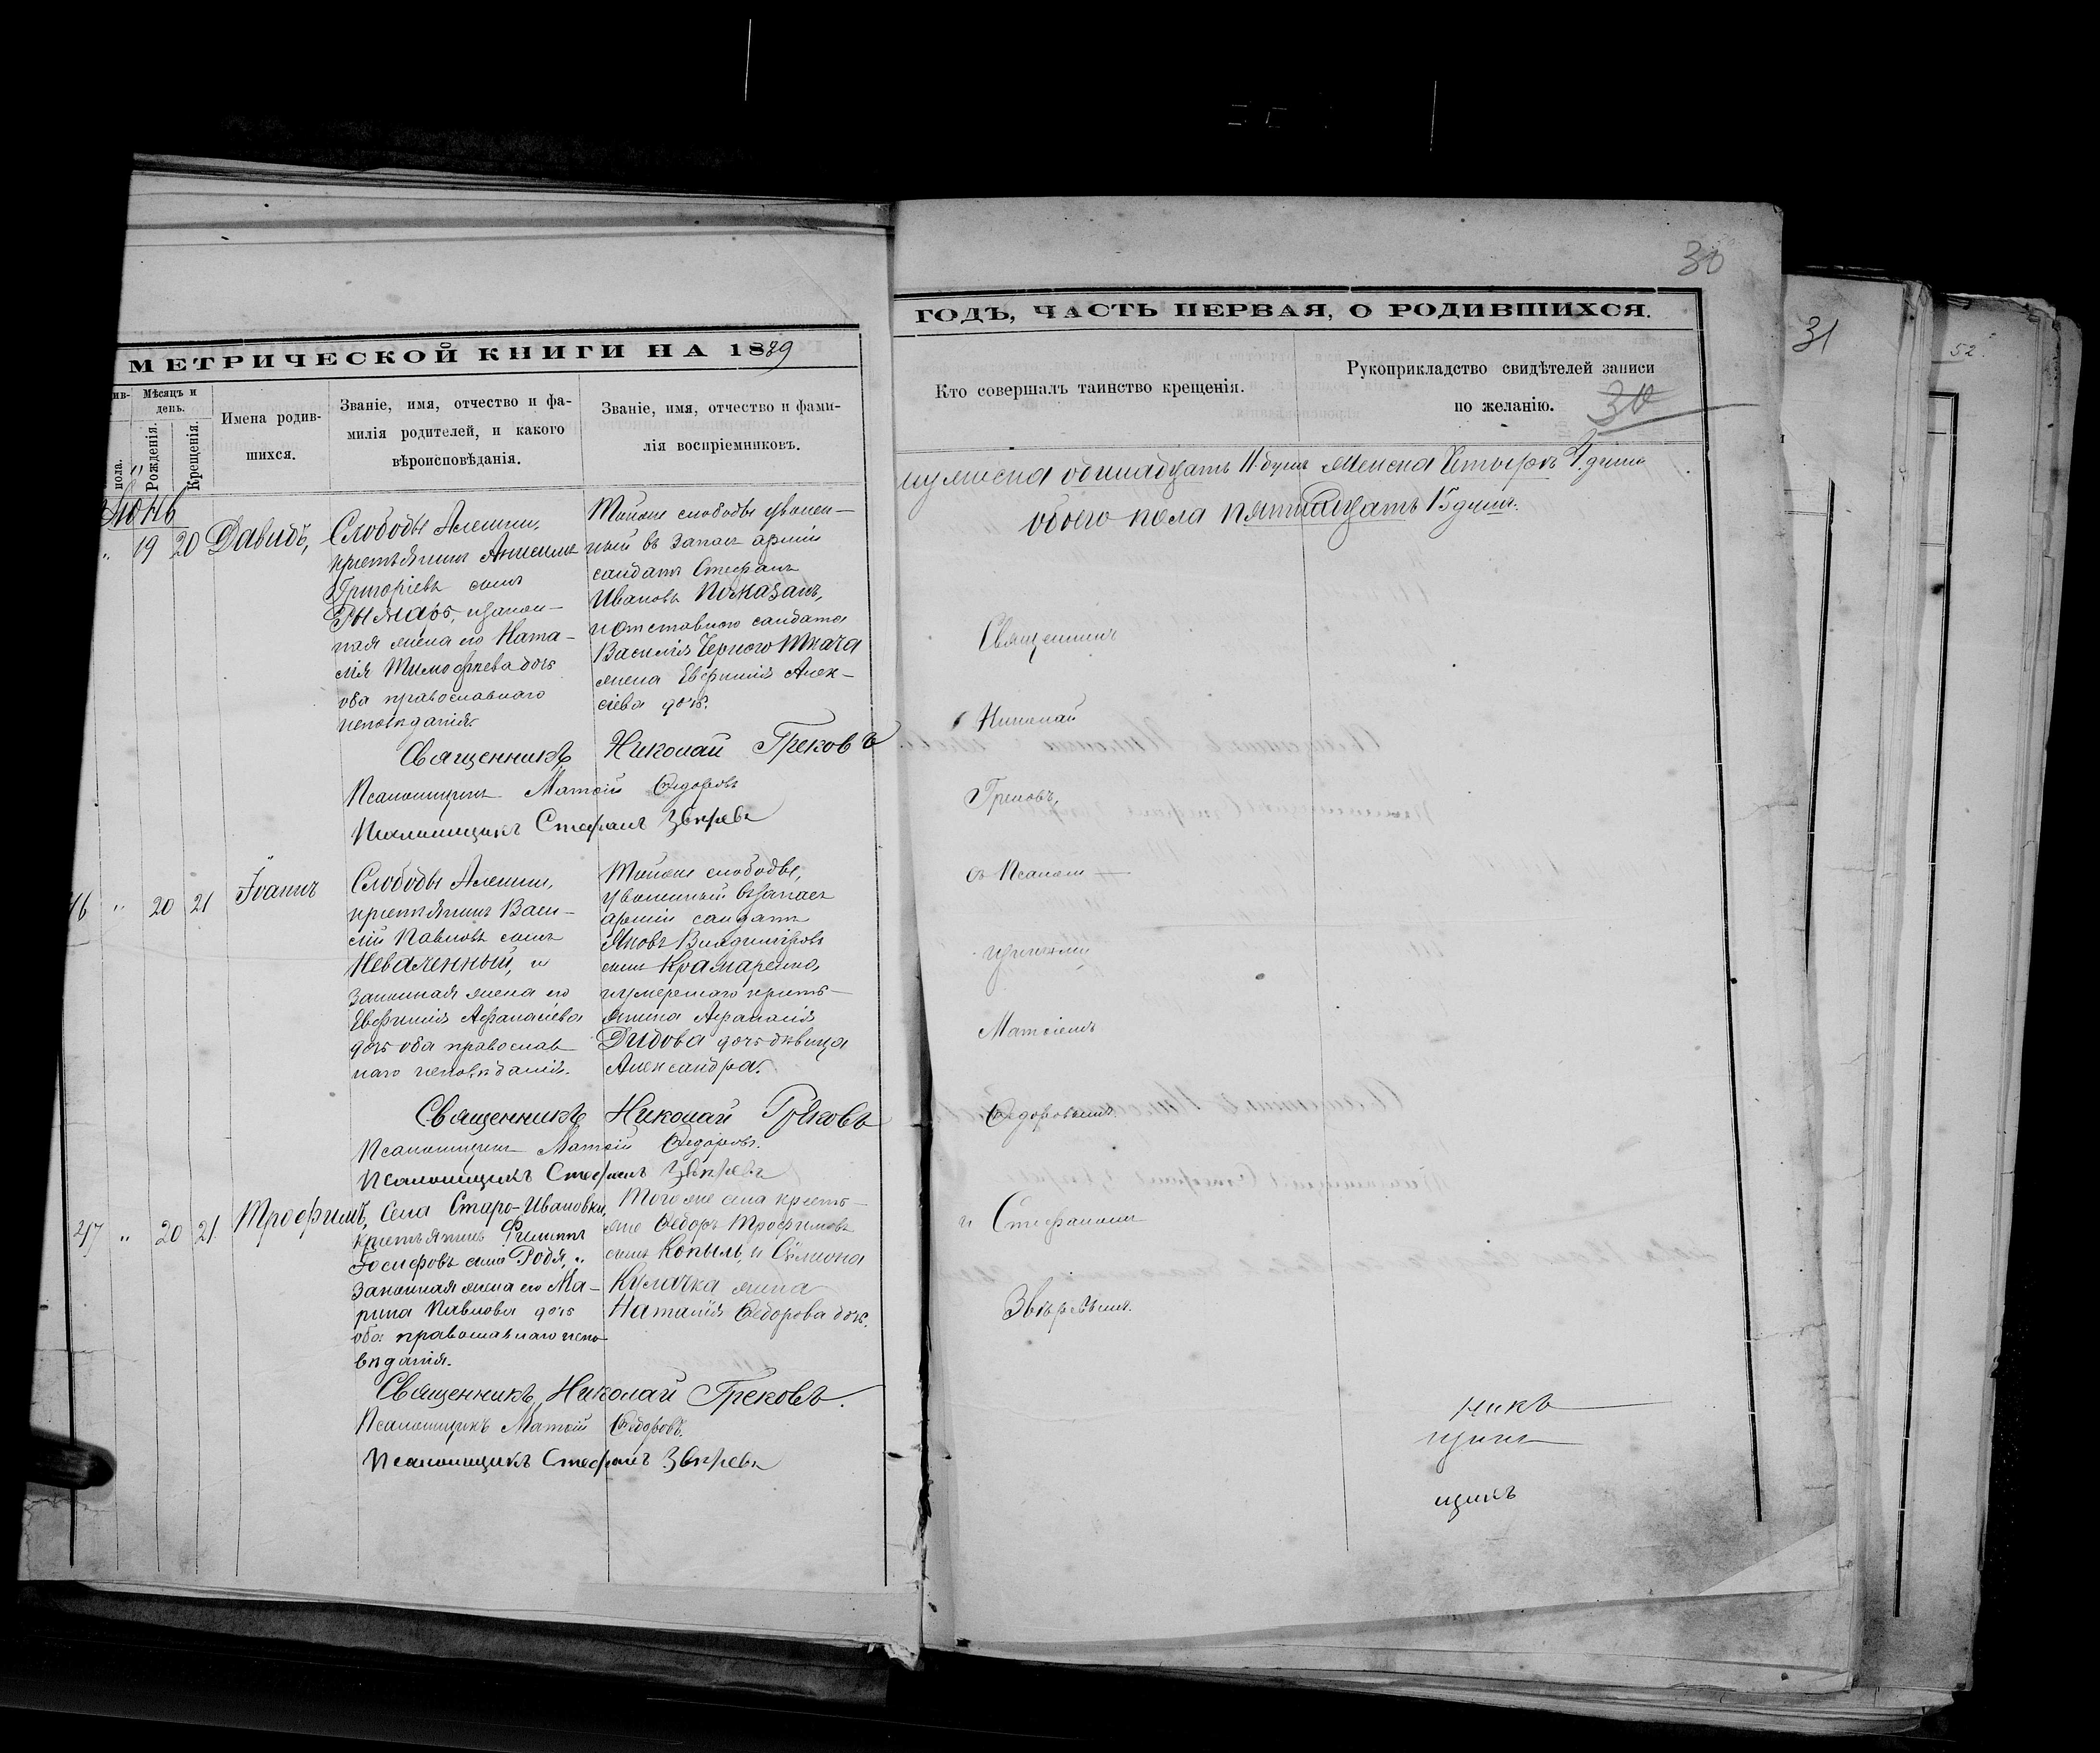 30
МЕТРИЧЕСКОЙ КНИГИ НА 1889
ГОДЪ, ЧАСТЬ ПЕРВАЯ, О РОДИВШИХСЯ.
31
52
ив-
пола.
Мѣсяцъ и
день.
Рожденія.
Крещенія.
Имена родив-
шихся.
Званіе, имя, отчество и фа-
милія родителей, и какого
вѣроисповѣданія.
Званіе, имя, отчество и фами-
лія воспріемниковъ.
Кто совершалъ таинство крещенія.
Рукоприкладство свидѣтелей записи
по желанію.
30
Іюнь
19 20 Давидъ,
Слободы Алешки,
крестьянинъ Анисимъ
Григоріевъ сынъ
Рымарь, и закон-
ная жена его Ната-
лія Тимофеева дочь
оба православнаго
исповѣданія.
Тойже слободы уволен-
ный въ запасъ арміи
солдатъ Стефанъ
Ивановъ Показанъ,
и отставного солдата
Василія Черного Ткача
жена Евфимія Алек-
сіева дочь.
Священникъ Николай Грековъ
Псаломщикъ Матѳій Ѳедоровъ
Псаломщикъ Стефанъ Звѣревъ
46 " 20 21 Іоаннъ
Слободы Алешки,
крестьянинъ Васи-
лій Павловъ сынъ
Неваленный, и
законная жена его
Евфимія Афанасіева
дочь оба православ-
наго исповѣданія.
Тойже слободы,
уволенный въ запасъ
арміи солдатъ
Яковъ Владиміровъ
сынъ Крамаренко,
и умершаго кресть-
янина Афанасія
Дидова дочь дѣвица
Александра.
Священникъ Николай Грековъ
Псаломщикъ Матѳій Ѳедоровъ.
Псаломщикъ Стефанъ Звѣревъ
47 " 20 21 Трофимъ,
Села Старо-Ивановки,
крестьянинъ Филиппъ
Іосифовъ сынъ Родя, и
законная жена его Ма-
рина Павлова дочь
оба православнаго испо-
вѣданія.
Того же села кресть-
яне Ѳедоръ Трофимовъ
сынъ Копыль, и Симиона
Кулачка жена
Наталія Ѳедорова дочь.
Священникъ Николай Грековъ.
Псаломщикъ Матѳій Ѳедоровъ.
Псаломщикъ Стефанъ Звѣревъ
мужеска одинадцать 11. душъ женска Четыре 4. души
обоего пола пятнадцать 15 душъ.
Священникъ
Николай
Грековъ,
съ Псалом-
щиками
Матѳіемъ
Ѳедоровымъ
и Стефаномъ
Звѣревымъ.
никъ
щикъ
щикъ